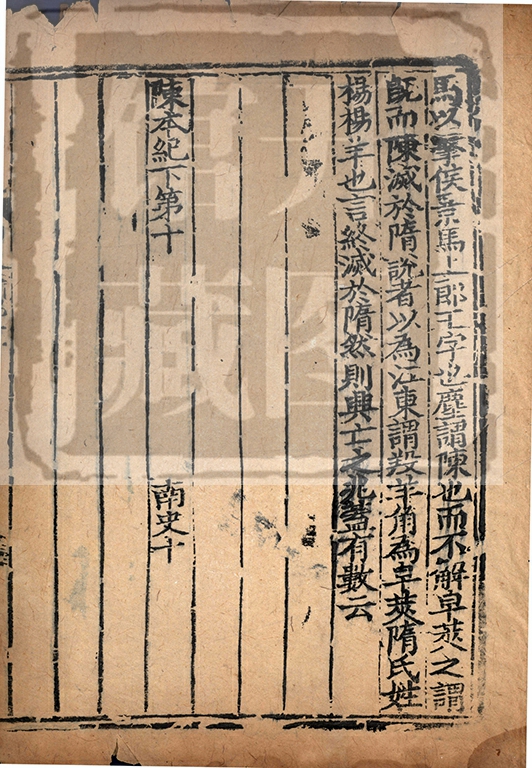 馬以擊侯景馬上郎王字也塵謂陳也而不解皁莢之謂
既而陳滅於隋說者以為江東謂羖羊角為皁莢隋氏姓
楊楊羊也言終滅於隋然則興亡之兆蓋有數云
陳本紀下第十
南史十